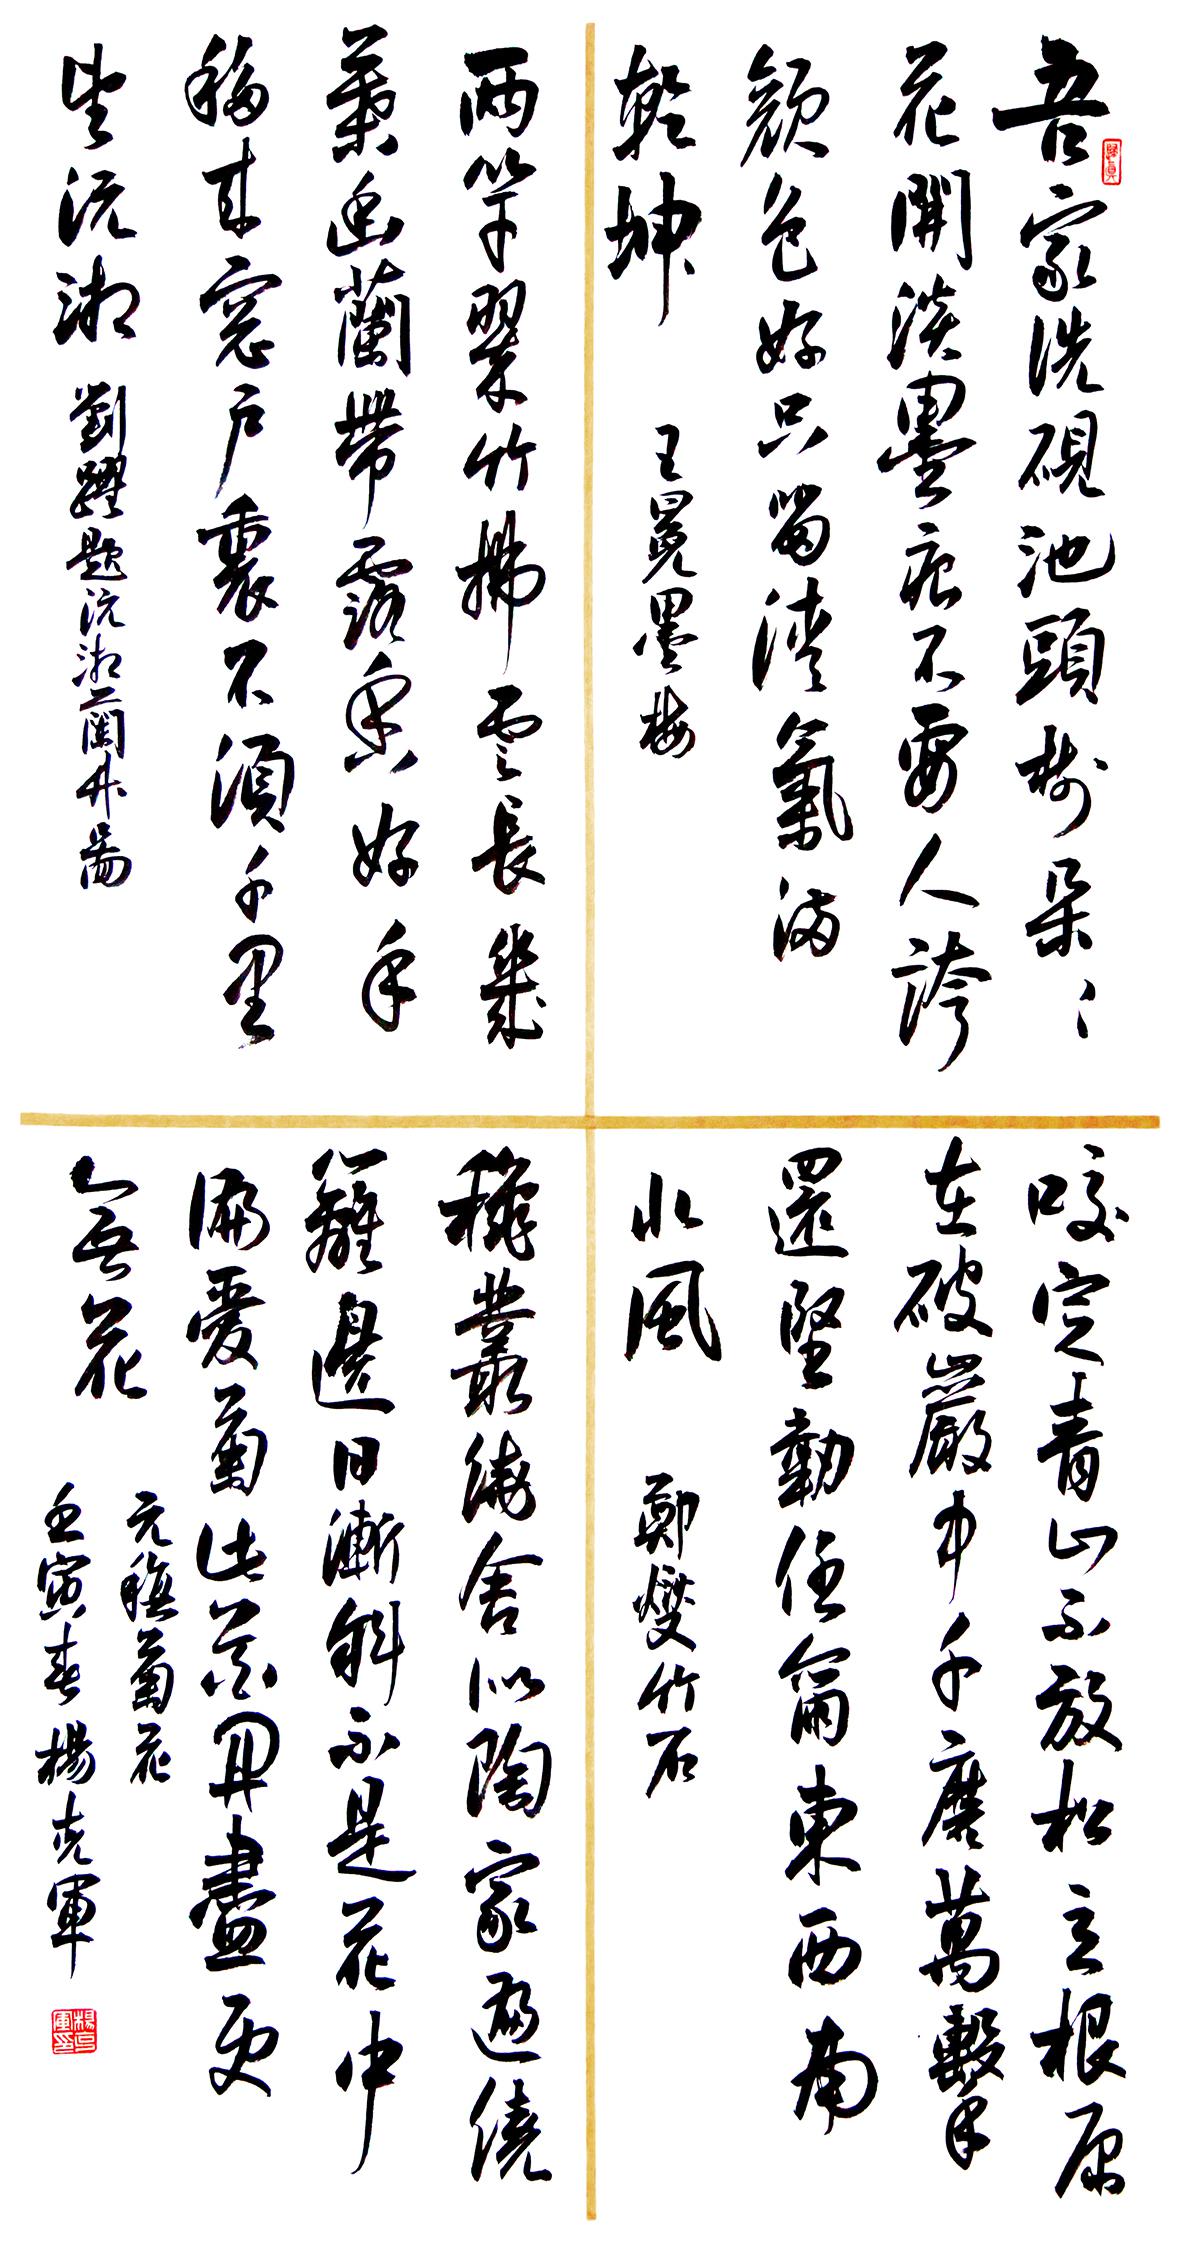 吾家洗硯池頭樹朵〻
花開淡墨痕不要人誇
顏色好只留清氣滿
乾坤
王冕墨梅
兩竿翠竹拂雲長幾
葉幽蘭帶露香好手
移來窓戶裏不須千里
望沅湘
劉躍題沅湘蘭竹圖
咬定青山不放松立根原
在破巖中千磨萬擊
還堅勁任爾東西南
北風
鄭燮竹石
穐叢繞舍似陶家遍繞
籬邊日漸斜不是花中
偏愛菊此花開盡更
無花
元稹菊花
壬寅春楊克軍